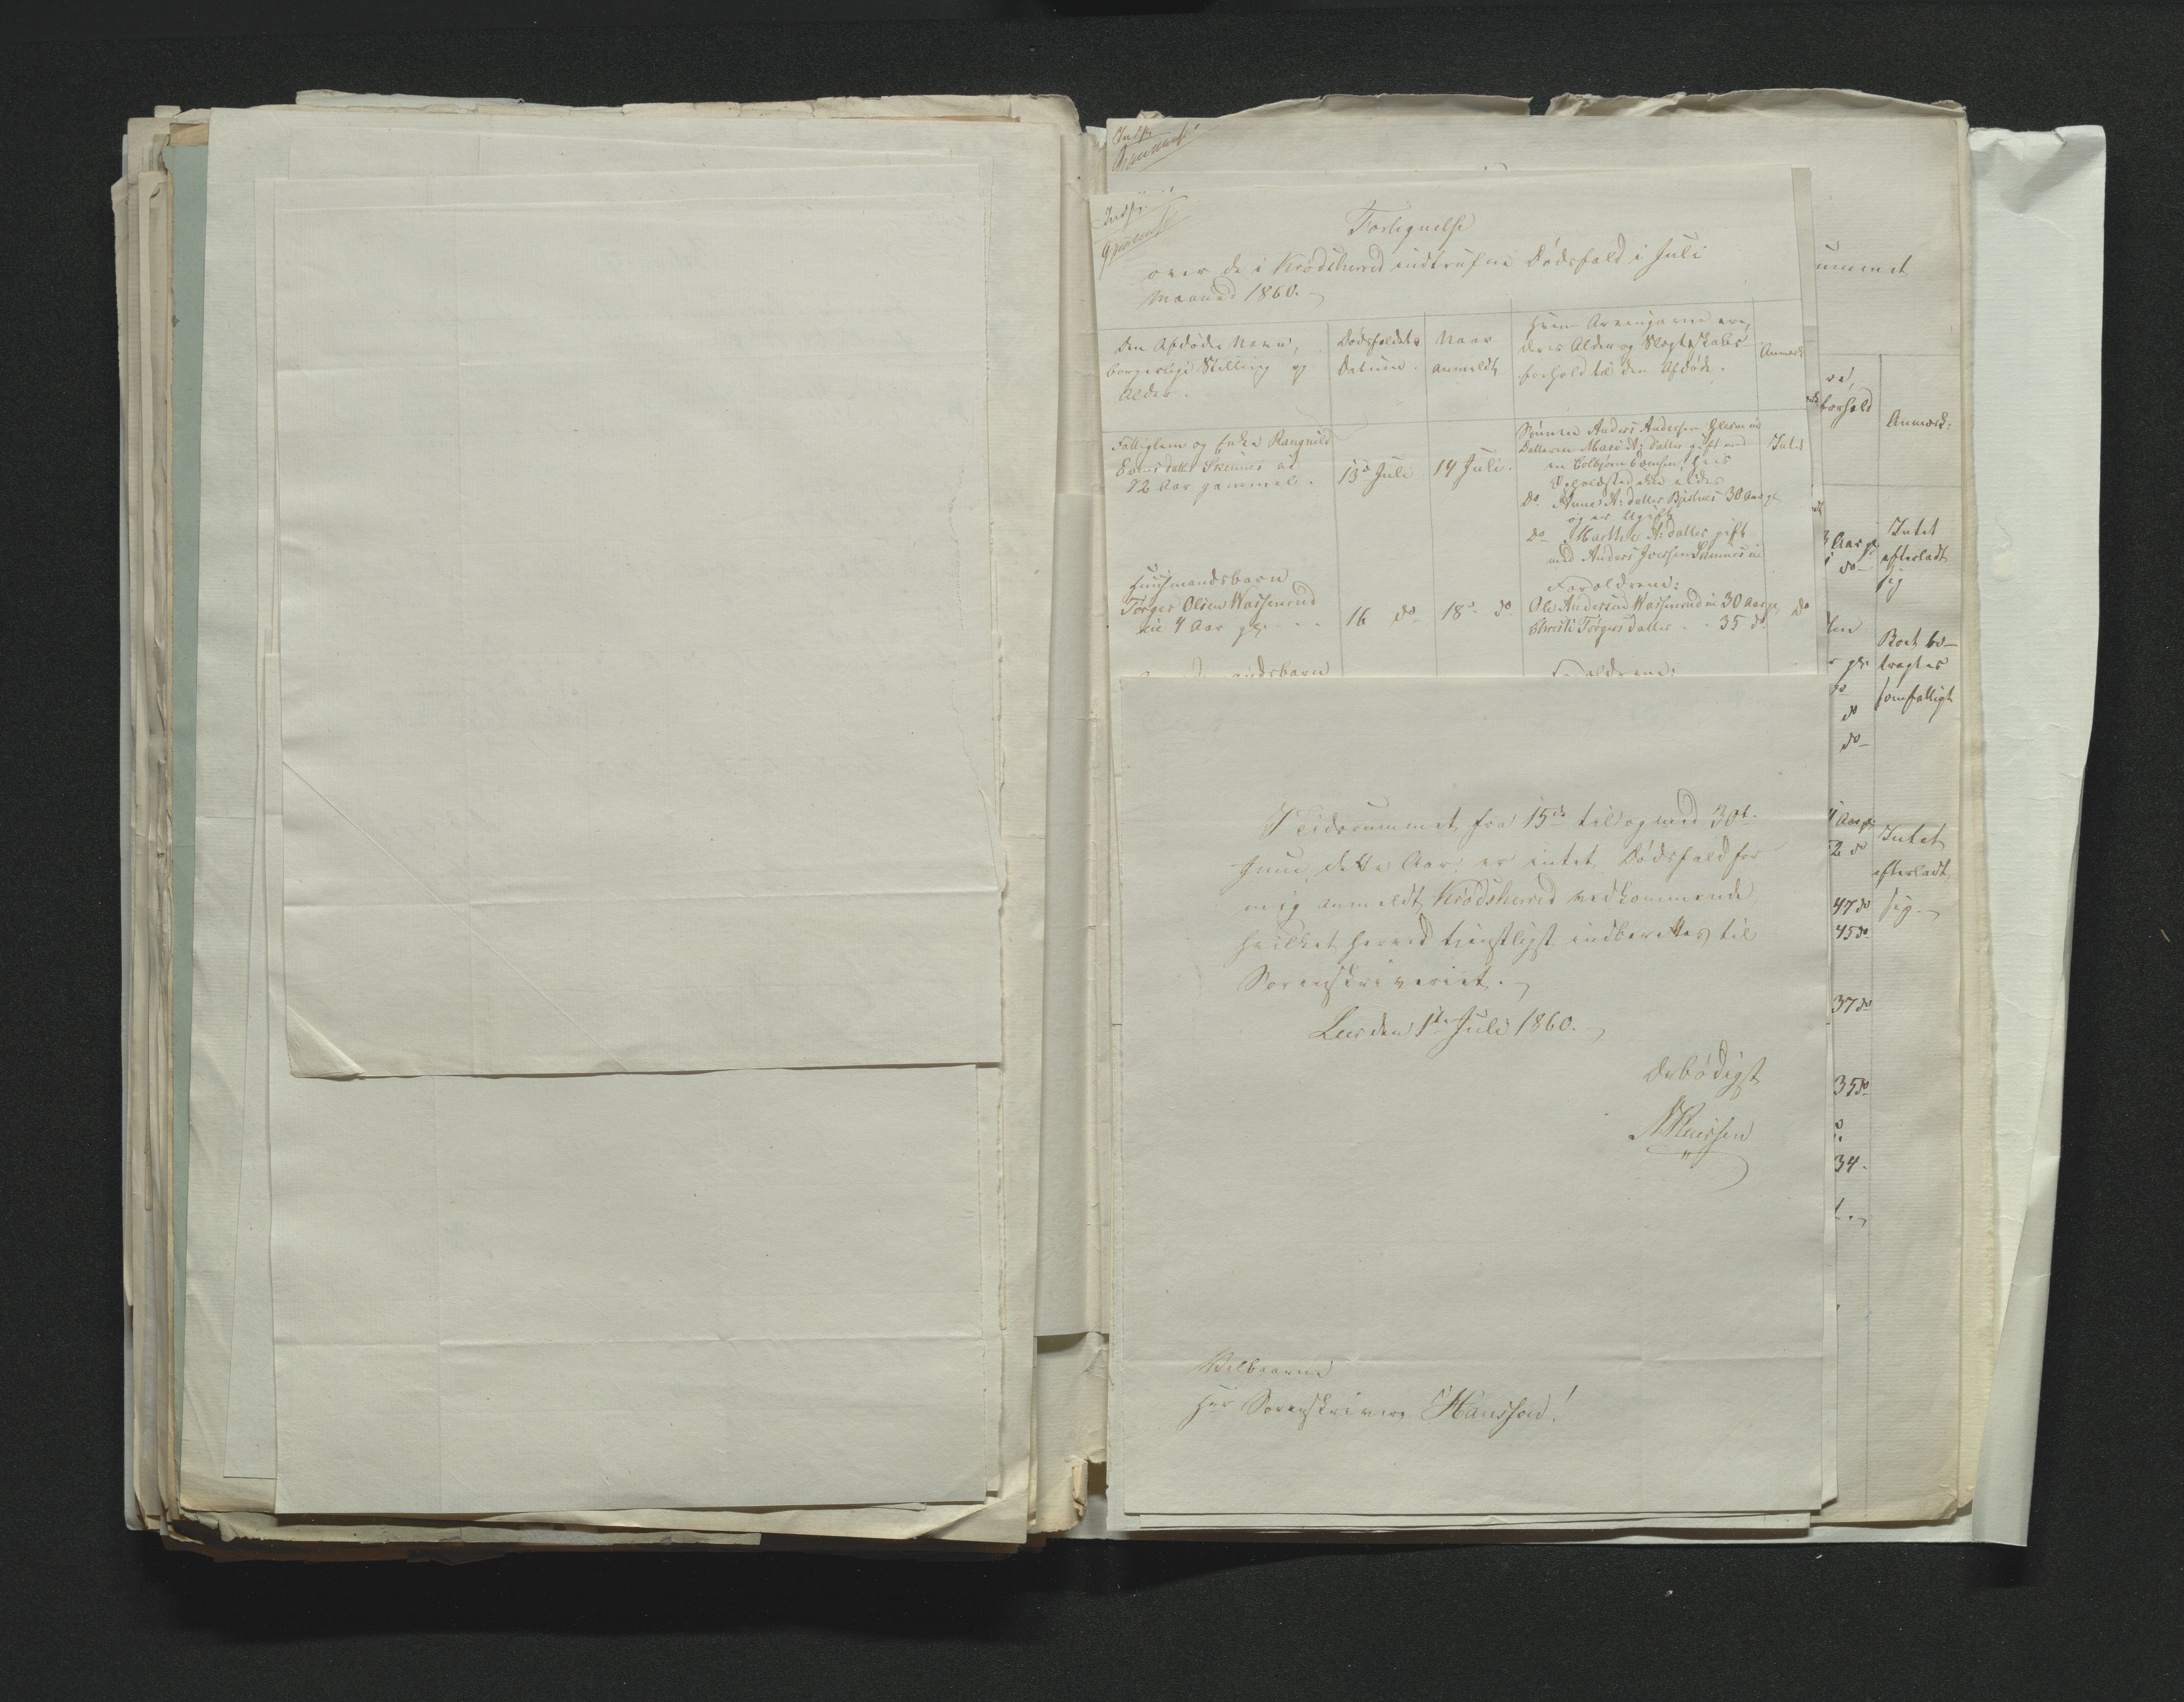 Fortegnelse
over de i Krødsherred indtrufne Dødsfald i Juli
Maaned 1860.
Den Afdødes Navn,
borgerlige Stilling og
Alder.
Dødsfaldets
Datum.
Naar
anmeldt
Hvem Arvingerne ere,
deres Alder og Slægtskabs
forhold til den Afdøde.
Anmærk
Fattiglem og Enke Rangnild
Evensdatter Skinnes
72 Aar gammel.
13de Juli
14 Juli.
Sønnen Anders Andersen
Datteren Mari A: datter gift med
en Colbjørn
Opholdssted ikke vides
Do Anne A: datter 30 Aar gl
og er ugift
Do Marthe A: datter gift
med Anders Iversen Skinnes
Intet
Huusmandsbarn
Torger Olsen Wassenrud
4 Aar gl.
16 do
18de do
Forældrene:
Ole Andersen Wassenrud 30 Aar gl
Christi Torgersdatter - - 35 do
do
andsbarn
Forældrene:
I Tidsrummet fra 15de til og med 30t
Juni dette Aar er intet Dødsfald for
mig anmeldt Krødsherred vedkommende
hvilket herved tjenstligst indberettes til
Sorenskriveriet.
Leer den 1te Juli 1860.
Ærbødigst
Velbaarne
Herr Sorenskriver Hansson!
ummet
forhold
Anmærk:
3 Aar gl
do
Intet
efterladt
sig
Boet be-
tragtes
som fattigt
do
do
do
4 Aar gl
2 do
47 do
45 do
Intet
efterladt
sig.
37 do
35 do
34.